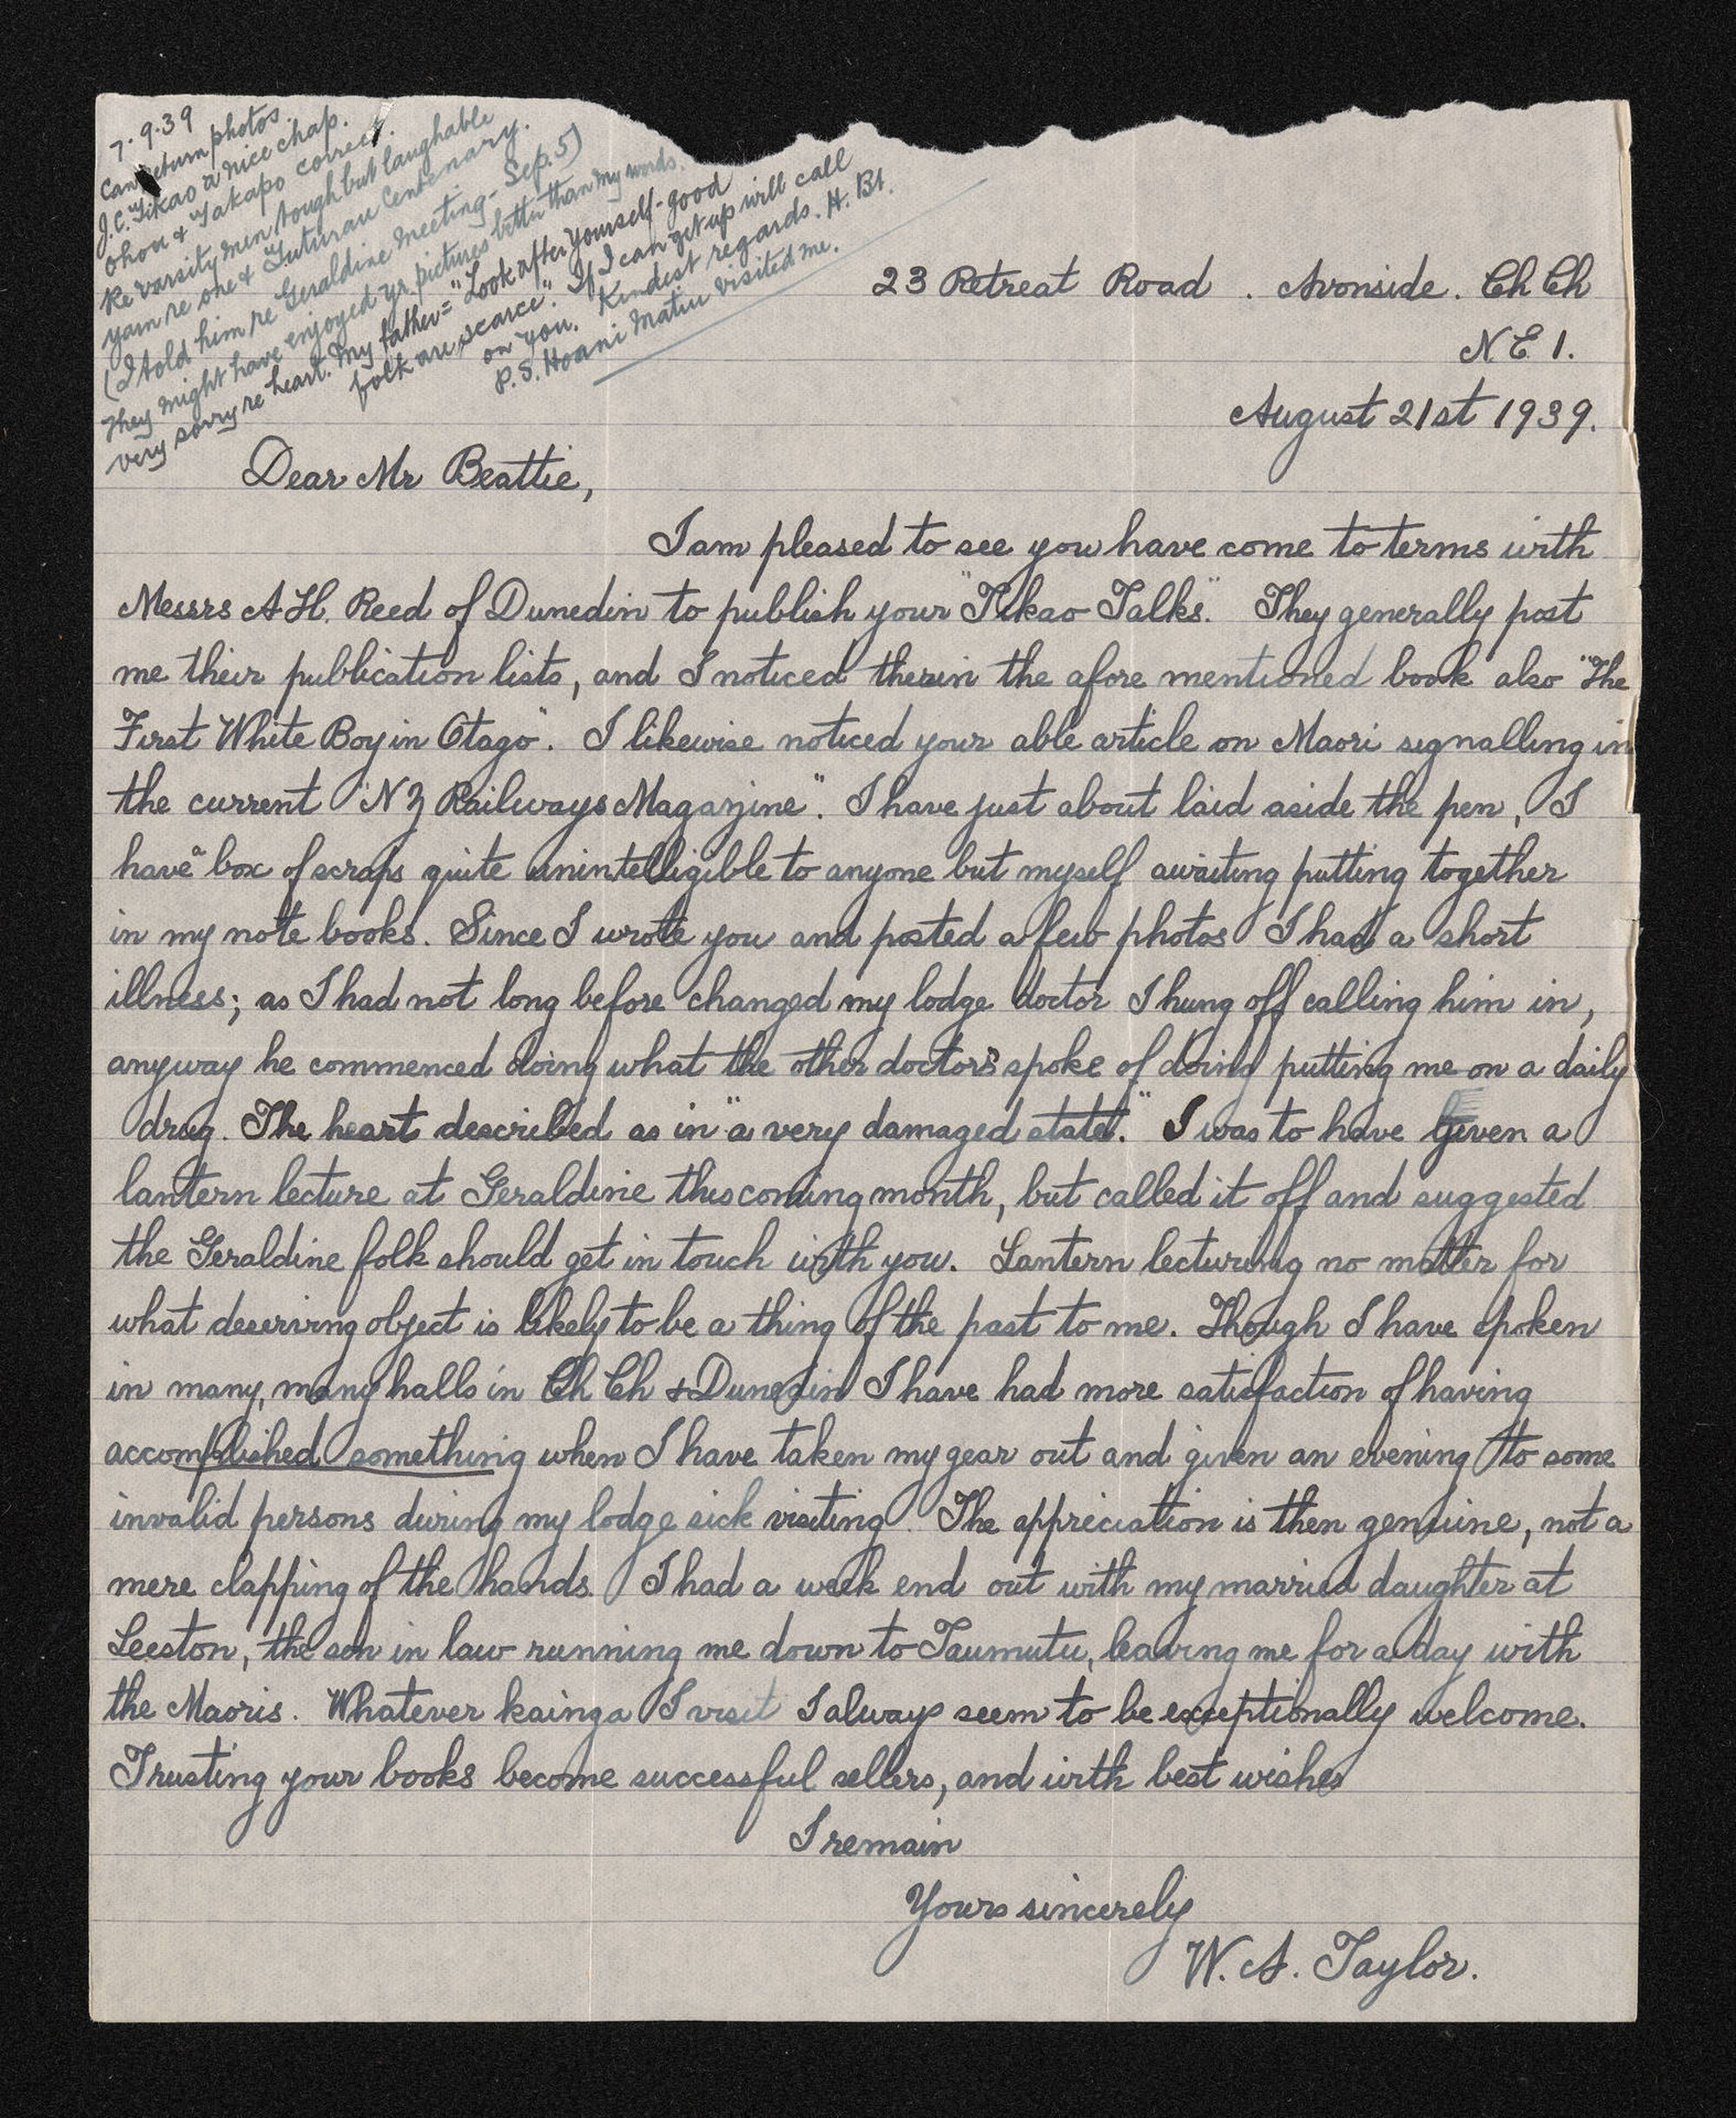 7.9.39
Can return photos.
J.C. Tikao a nice chap.
Ohou & Takapo correct.
Re varsity men tough but laughable
yarn re one & Tuturau Centenary.
(I told him re Geraldine meeting - Sep. 5)
They might have enjoyed yr. pictures better than my words.
very sorry re heart. My father = "Look after yourself - good
folk are scarce". If I can get up will call
on you. Kindest regards. H. Bt.
P.S. Hoani Matiu visited me.
23 Retreat Road . Avonside. Ch Ch
N E 1.
August 21st 1939.
Dear Mr Beattie,
I am pleased to see you have come to terms with
Messrs A H. Reed of Dunedin to publish your "Tikao Talks." They generally post
me their publication lists, and I noticed therein the afore mentioned book also "The
First White Boy in Otago". I likewise noticed your able article on Maori signalling in
the current "N Z Railways Magazine". I have just about laid aside the pen, I
have a box of scraps quite unintelligible to anyone but myself awaiting putting together
in my note books. Since I wrote you and posted a few photos I had a short
illness; as I had not long before changed my lodge doctor I hung off calling him in,
anyway he commenced doing what the other doctors spoke of doing putting me on a daily
drug. The heart described as in "a very damaged state." I was to have given a
lantern lecture at Geraldine this coming month, but called it off and suggested
the Geraldine folk should get in touch with you. Lantern lecturing no matter for
what deserving object is likely to be a thing of the past to me. Though I have spoken
in many, many halls in Ch Ch & Dunedin I have had more satisfaction of having
accomplished something when I have taken my gear out and given an evening to some
invalid persons during my lodge sick visiting. The appreciation is then genuine, not a
mere clapping of the hands. I had a week end out with my married daughter at
Leeston, the son in law running me down to Taumutu, leaving me for a day with
the Maoris. Whatever kainga I visit I always seem to be exceptionally welcome.
Trusting your books become successful sellers, and with best wishes
I remain
Yours sincerely
W. A. Taylor.